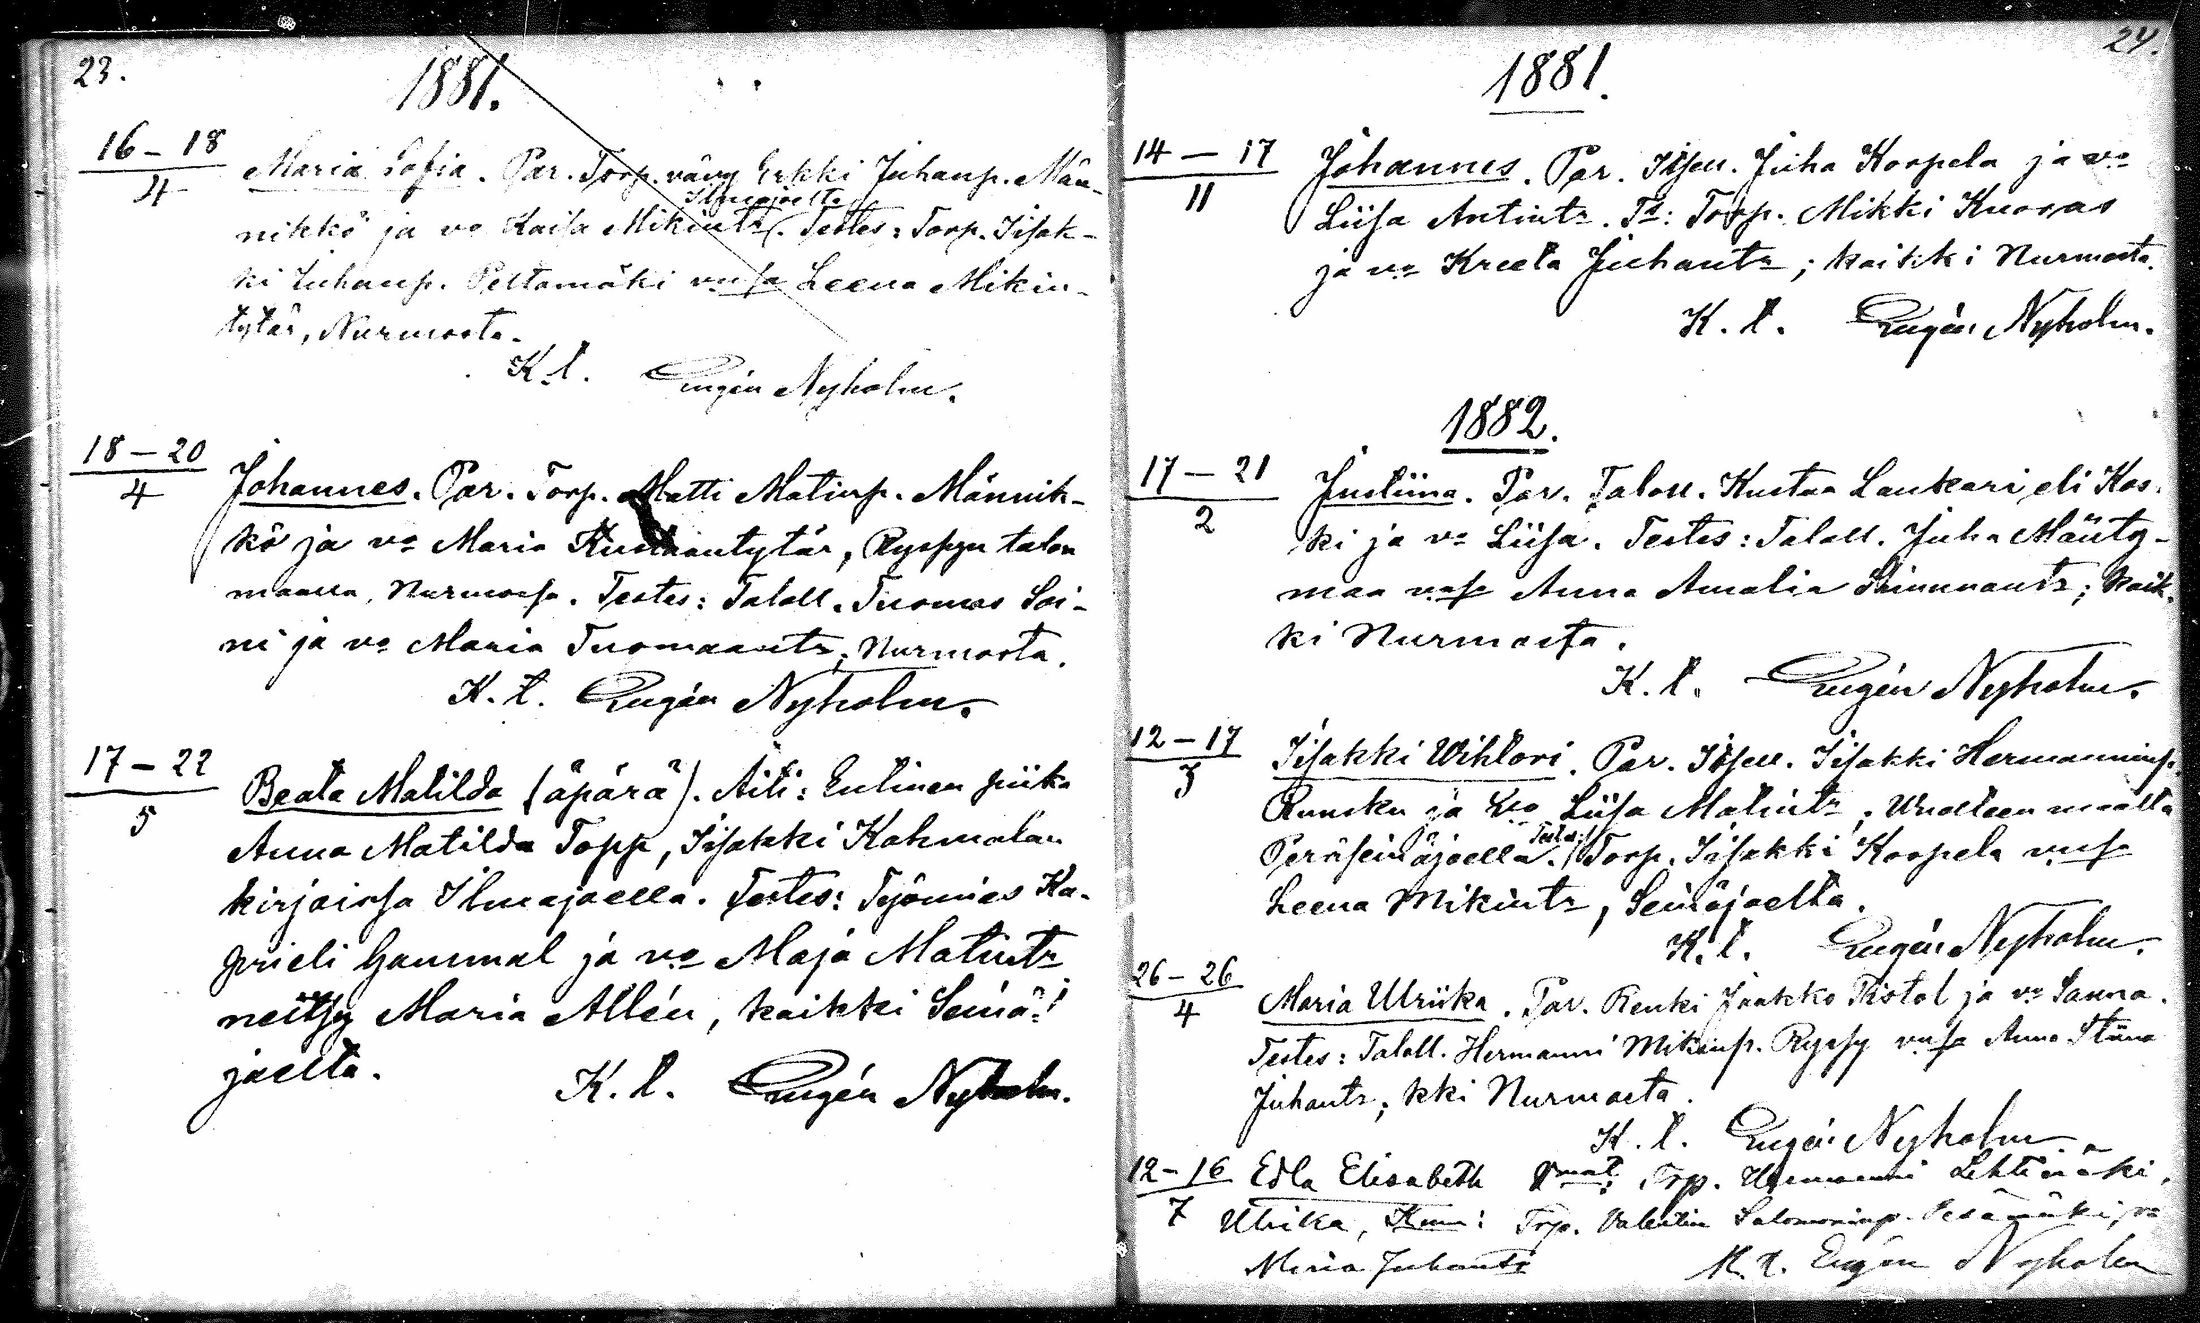 23.
1881.
16-18
4
Maria Sofia. Par. Torp. vävy Erkki Juhanp. Män-
Ilmajoelta
nikkö ja vo Kaisa Mikintr. Testes: Torp. Iisak-
ki Juhanp. Peltomäki vnsa Leena Mikin-
tytär, Nurmosta.
K. l. Eugén Nyholm.
18-20
4
Johannes. Par. Torp. Matti Matinp. Männik-
kö ja vo Maria Kustaantytär, Ryssyn talon
maalla, Nurmossa. Testes: Taloll. Tuomas Soi-
ni ja vo Maria Tuomaantr, Nurmosta.
K. l. Eugén Nyholm.
17-22
5
Beata Matilda (äpärä). Äiti: Entinen piika
Anna Matilda Topp, Iisakki Kahmalan
kirjoissa Ilmajoella. Testes: Työmies Ka-
prieli Gammal ja vo Maja Matintr
neitsy Maria Allén, kaikki Seinä-
joelta.
K. l. Eugén Nyholm.
24.
1881.
14-17
11
Johannes. Par. Itsell. Juha Korpela ja vo
Liisa Antintr. Ts: Torp. Mikki Kuoras
ja vo Kreeta Juhantr; kaikki Nurmosta.
K. l. Eugén Nyholm.
1882.
17-21
2
Justiina. Par. Taloll. Kustaa Laukari eli Kos-
ki ja vo Liisa. Testes: Taloll. Juha Mänty-
maa vnsa Anna Amalia; kaik-
ki Nurmosta.
K. l. Eugén Nyholm.
12-17
3
Iisakki Wihtori. Par. Itsell. Iisakki Hermanninp.
Ruusku ja vo Liisa Matintr, maalta
Testes:
Peräseinäjoella. Torp. Iisakki Korpela vnsa
Leena Mikintr, Seinäjoelta.
K. l. Eugén Nyholm.
26-26
4
Maria Ulriika. Par. Renki Jaakko Pistol ja vo Sanna.
Testes: Taloll. Hermanni Mikinp. Ryssy vnsa Anna Stiina
Juhantr; kki Nurmosta.
K. l. Eugén Nyholm
12-16
7
Edla Elisabeth Trp. Hermanni Lehtimäki,
Ulrika, Kum: Trp. Valentin Salomoninp. Pesämäki, vo
Maria Juhantr K. l. Eugén Nyholm